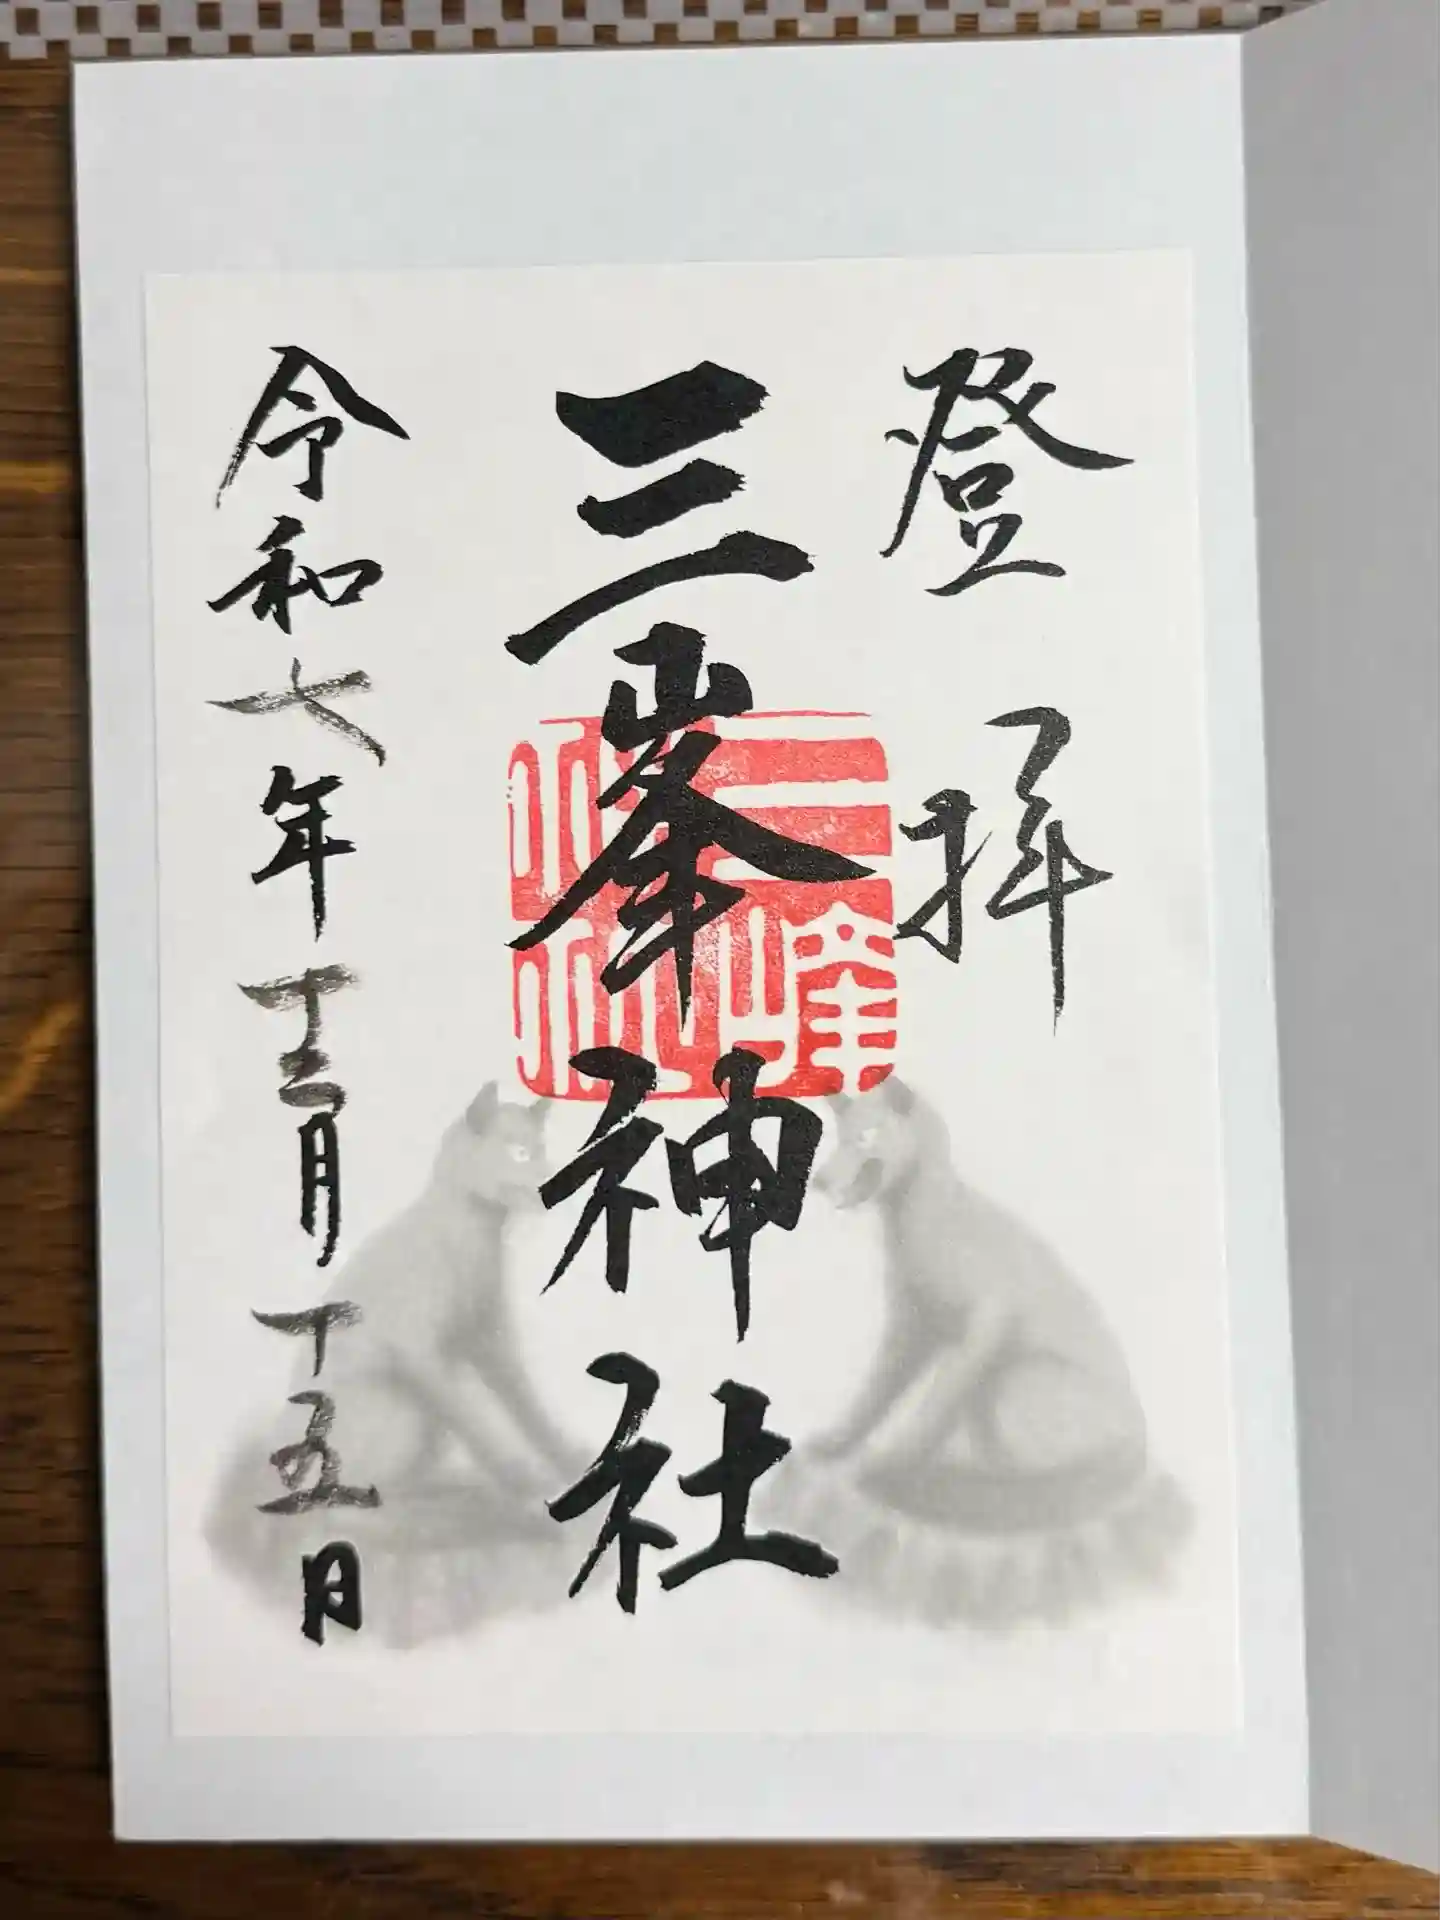 登拝
三峯神社
三峰神社
令和七年十二月十五日